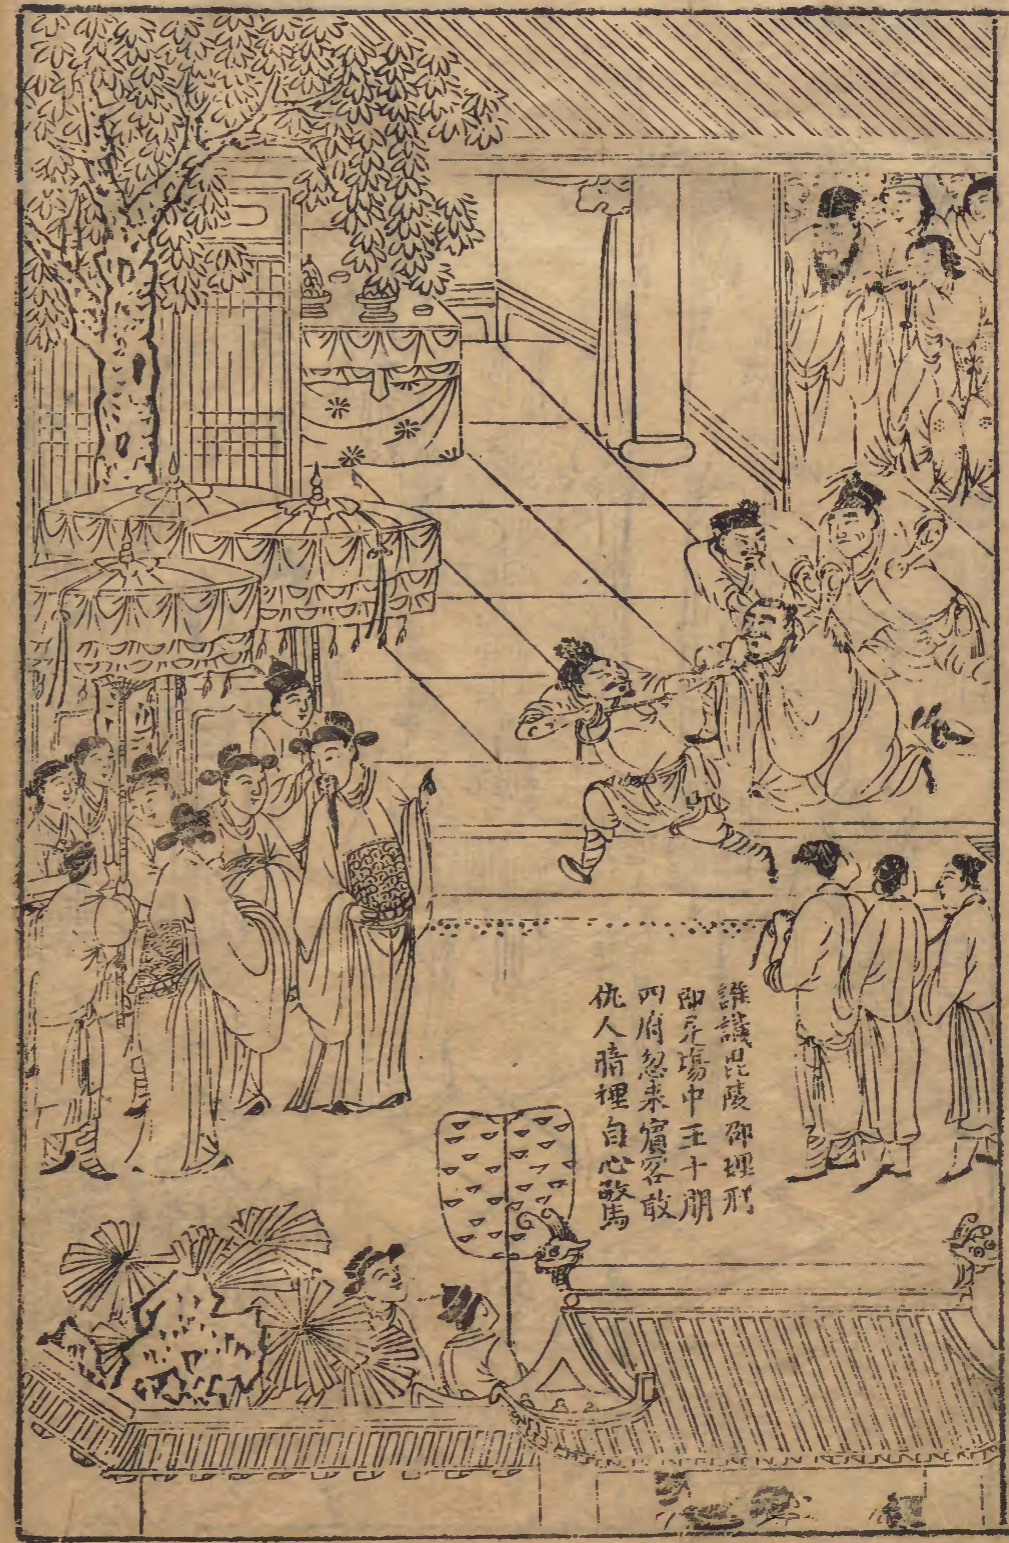 誰識毘陵邵理刑
即是場中王十朋
四府忽来賓客敢
仇人暗裡自心驚